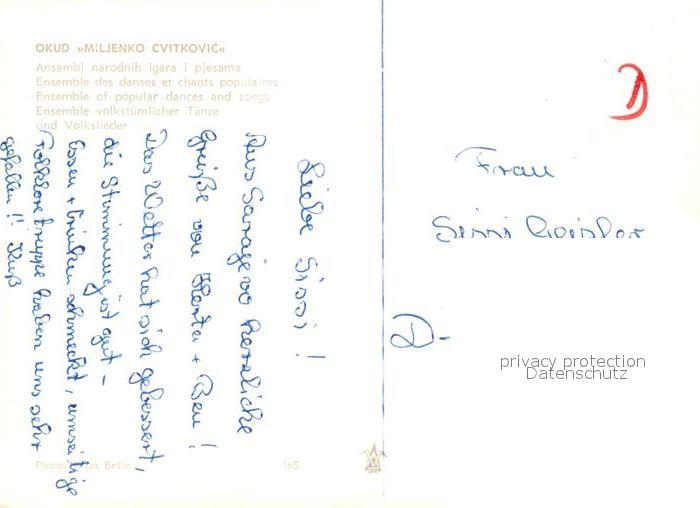 OKUD »MILJENKO CVITKOVIĆ«
Ansambl narodnih igara i pjesama
Ensemble des danses et chants populaires
Ensemble of popular dances and songs
Ensemble volkstümlicher Tänze
und Volkslieder
Liebe Sissi!
Aus Sarajevo herzliche
Grüße von Herta + Ben!
Das Wetter hat sich gebessert,
die Stimmung ist gut –
Essen + trinken schmeckt, umseitige
Folkloretruppe haben uns sehr
gefallen!! Kuß
Photo: Bešić
165
D
Frau
Sissi
D-
privacy protection
Datenschutz